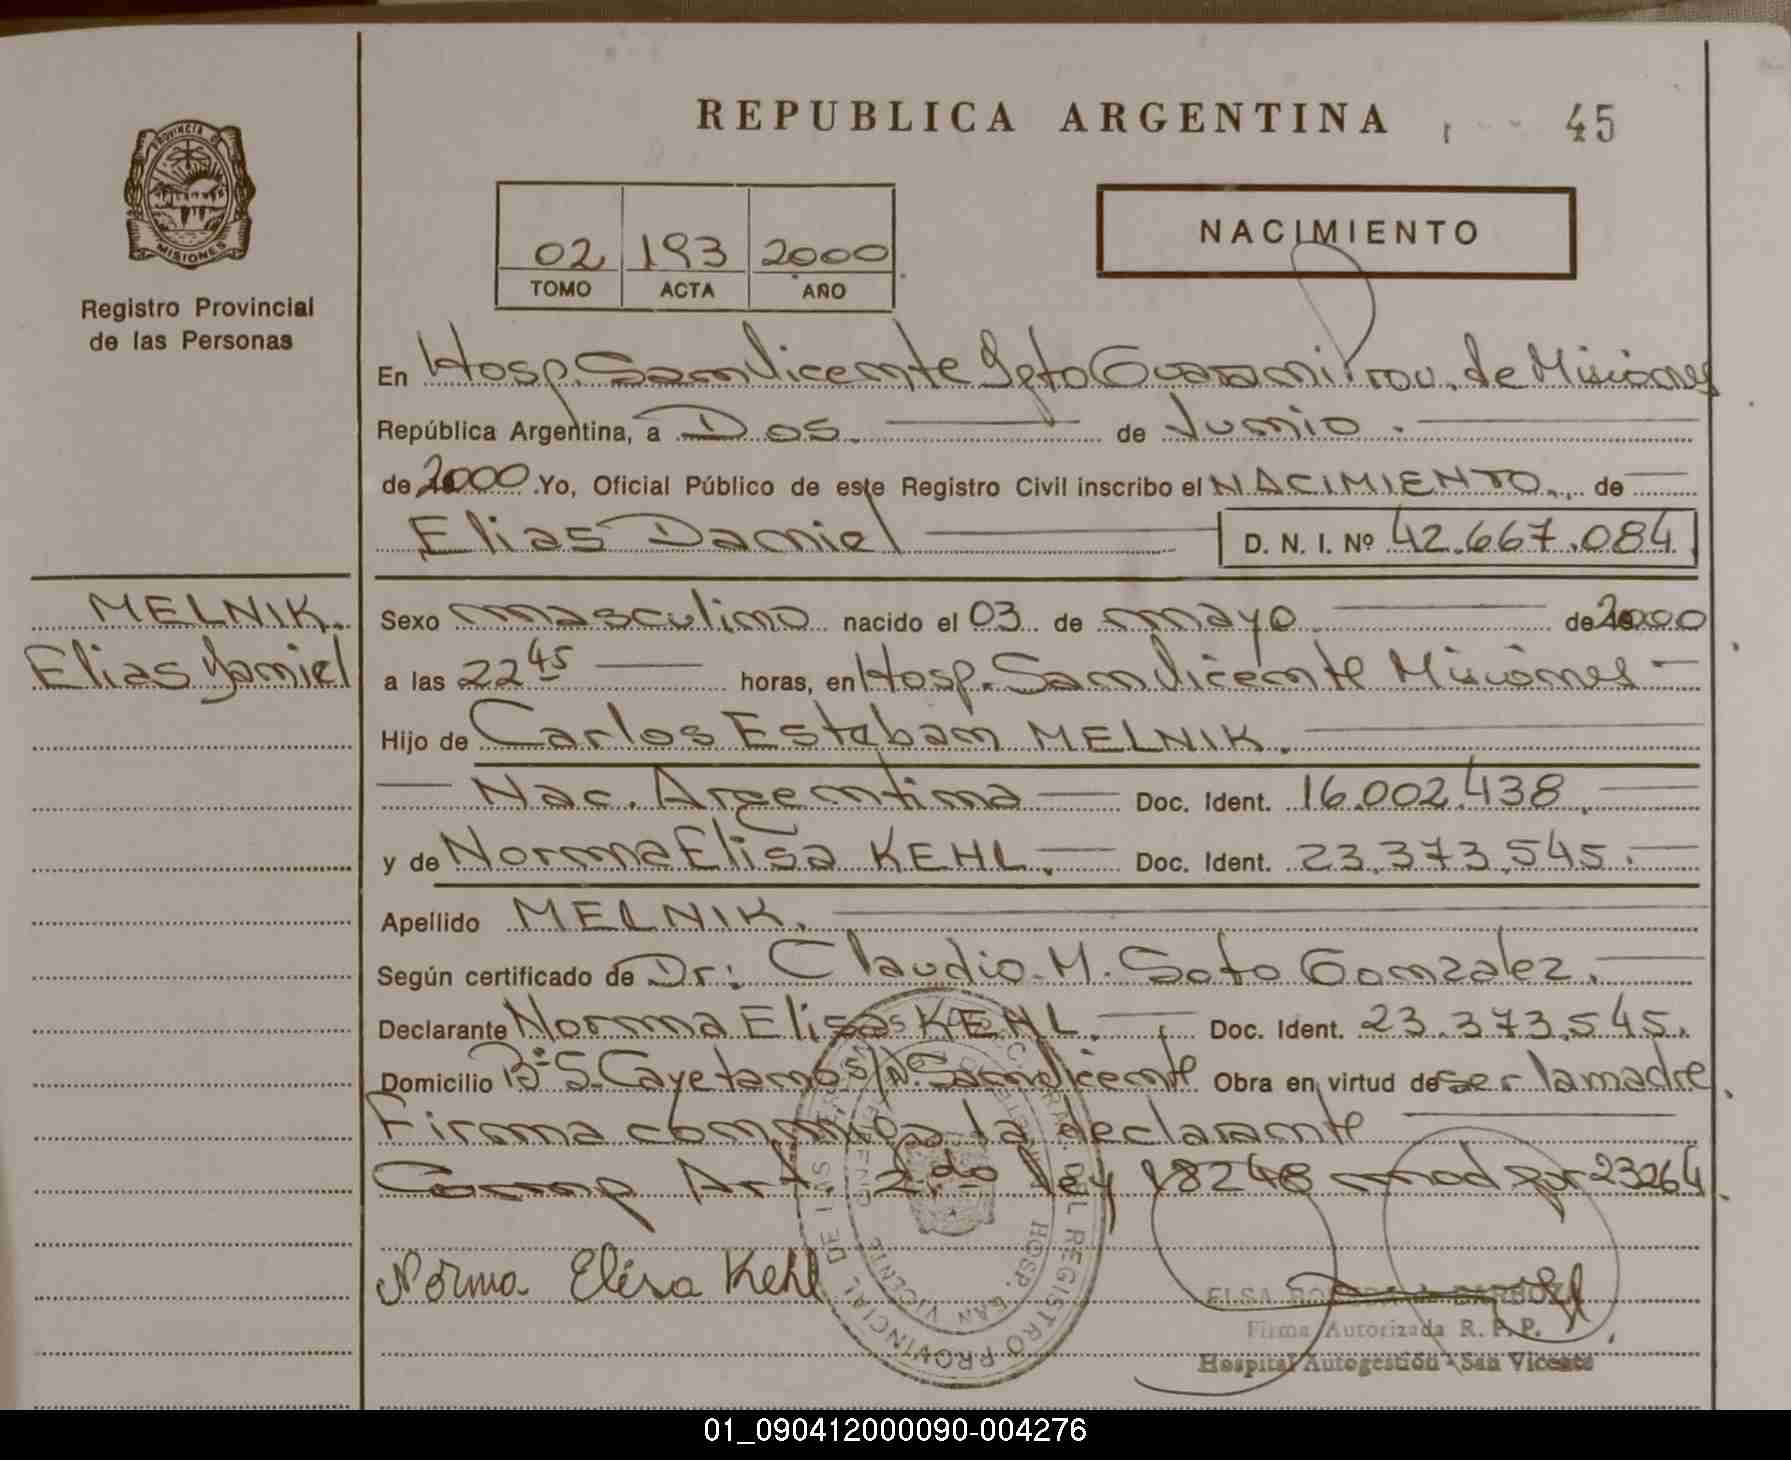 REPUBLICA ARGENTINA
45
PROVINCIA DE
MISIONES
Registro Provincial
de las Personas
02 193 2000
TOMO ACTA AÑO
NACIMIENTO
En Hosp. San Vicente Dpto Guarani Prov. de Misiones
República Argentina, a Dos. de Junio.
de 2000 Yo, Oficial Público de este Registro Civil inscribo el NACIMIENTO de
Elias Daniel D. N. I. Nº 42.667.084
MELNIK.
Elias Daniel
Sexo masculino nacido el 03 de mayo de 2000
a las 22 45 horas, en Hosp. San Vicente Misiones
Hijo de Carlos Esteban MELNIK.
Nac. Argentina Doc. Ident. 16.002.438
y de Norma Elisa KEHL. Doc. Ident. 23.373.545.
Apellido MELNIK.
Según certificado de Dr: Claudio M. Soto Gonzalez.
Declarante Norma Elisa KEHL. Doc. Ident. 23.373.545.
Domicilio Bº S. Cayetano s/Nº San Vicente Obra en virtud de ser la madre
Firma conmigo la declarante
Comp Art. 2do ley 18248 mod por 23264.
Norma Elisa Kehl
REGISTRO PROVINCIAL DE
HOSP. SAN VICENTE
ELSA BARBOZA
Firma Autorizada R. P. P.
Hospital Autogestión - San Vicente
01_090412000090-004276